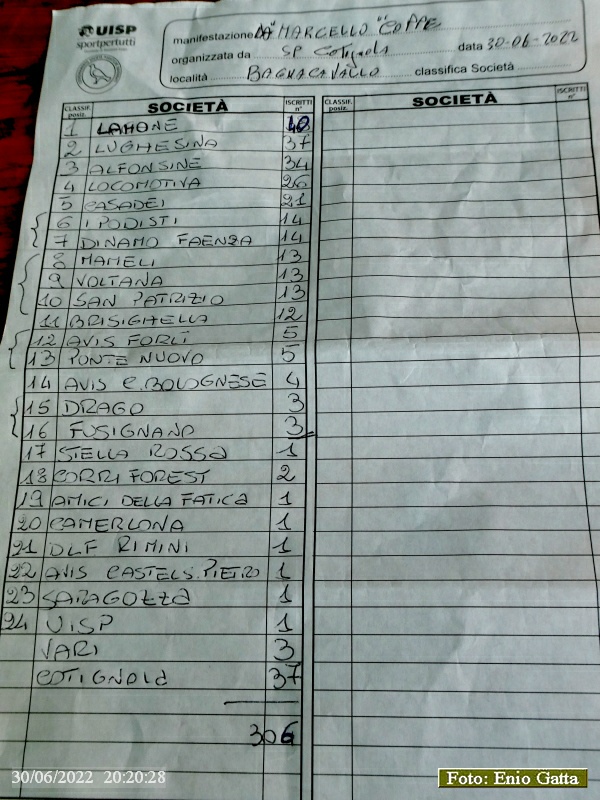 UISP
sportpertutti
manifestazione DA "MARCELLO" COPPE
organizzata da SP Cotignola data 30-06-2022
località BAGNACAVALLO classifica Società
CLASSIF. posiz. SOCIETÀ ISCRITTI n° CLASSIF. posiz. SOCIETÀ ISCRITTI n°
1 LAMONE 40
2 LUGHESINA 37
3 ALFONSINE 34
4 LOCOMOTIVA 26
5 CASADEI 21
6 I PODISTI 14
7 DINAMO FAENZA 14
8 MAMELI 13
9 VOLTANA 13
10 SAN PATRIZIO 13
11 BRISIGHELLA 12
12 AVIS FORLÌ 5
13 PONTE NUOVO 5
14 AVIS C. BOLOGNESE 4
15 DRAGO 3
16 FUSIGNANO 3
17 STELLA ROSSA 1
18 CORRI FOREST 2
19 AMICI DELLA FATICA 1
20 CAMERLONA 1
21 DLF RIMINI 1
22 AVIS CASTEL S. PIETRO 1
23 SARAGOZZA 1
24 UISP 1
VARI 3
COTIGNOLA 37
306
30/06/2022 20:20:28
Foto: Enio Gatta